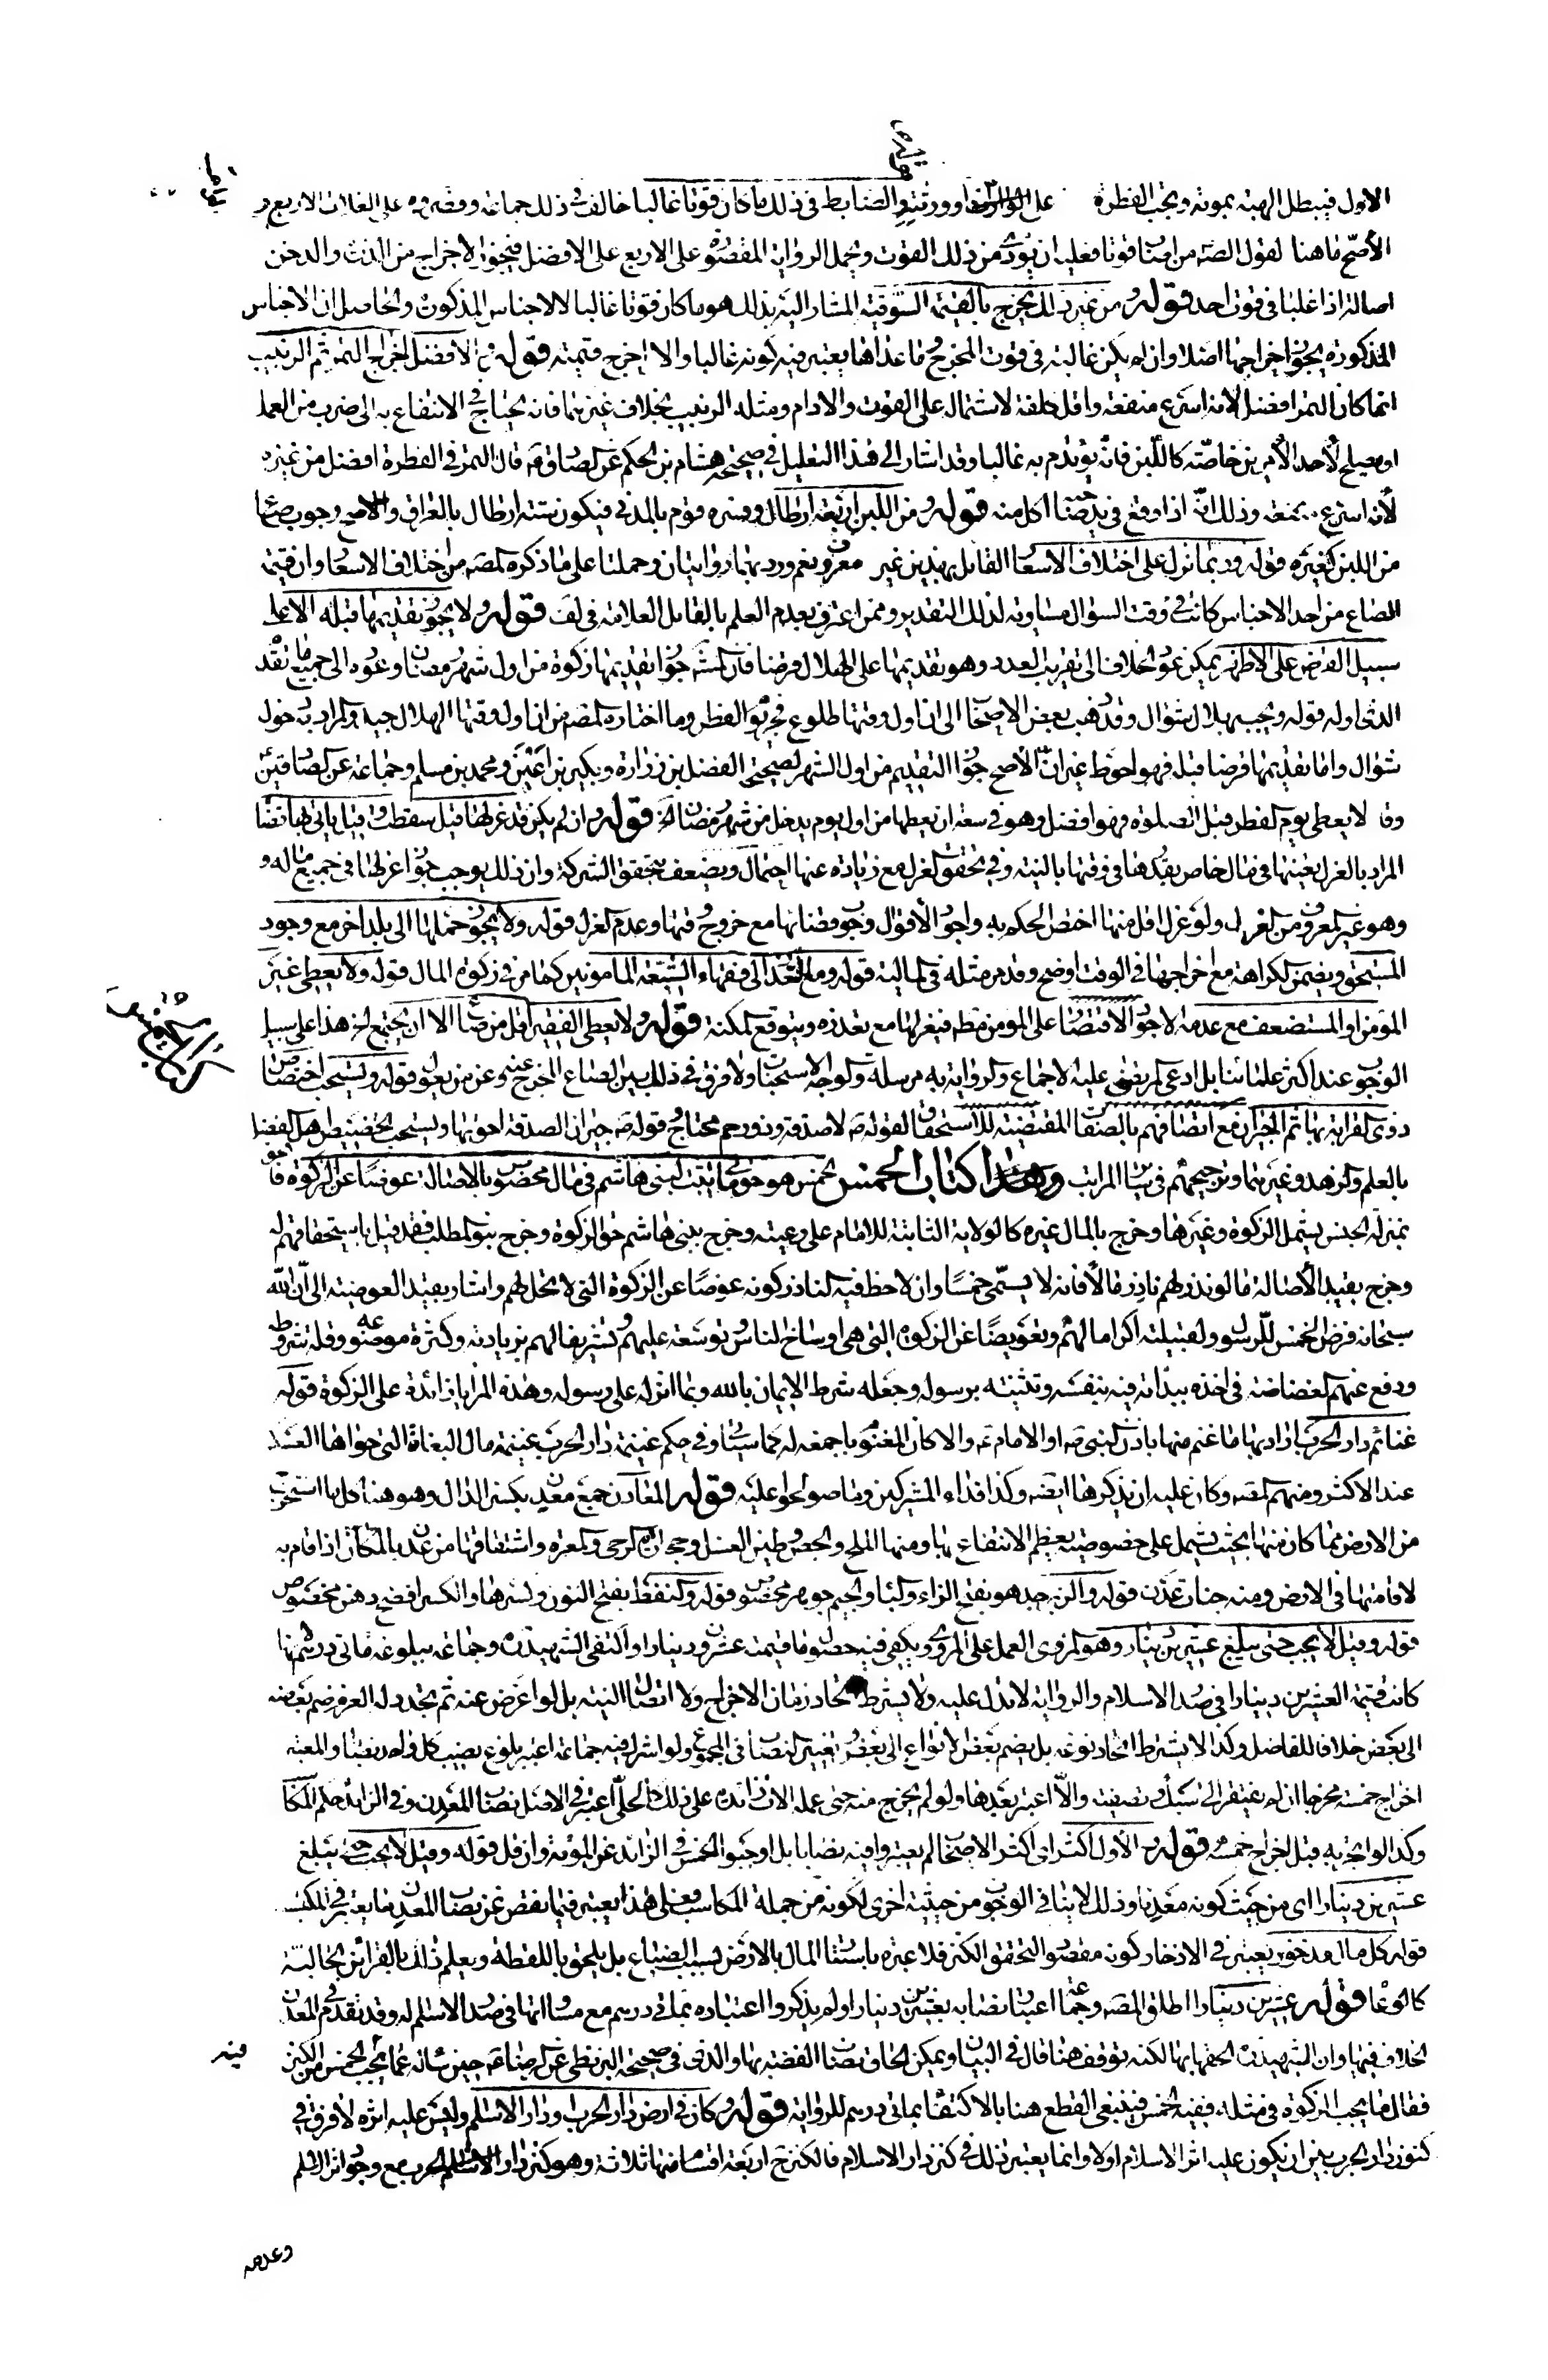 الاول فيبطل الهبة بموته وتجب الفطرة على الوارث او ورثته والضابط في ذلك ما كان قوتا غالبا خالف في ذلك جماعة وقصروه على الغلات الاربع و
الأصح ما هنا لقول الصادق من اقتات قوتا فعليه ان يؤدى من ذلك القوت ويحمل الرواية المقصورة على الاربع على الافضل فيجوز الاخراج من الذرة والدخن
اصالة اذا غلبا في قوت احد قوله ومن غير ذلك يخرج بالقيمة السوقية المشار اليه بذلك هو ما كان قوتا غالبا لا الاجناس المذكورة والحاصل ان الاجناس
المذكورة يجوز اخراجها اصلا وان لم يكن غالبة في قوت المخرج وما عداها يعتبر فيه كونه غالبا والا اخرج قيمته قوله والافضل اخراج التمر ثم الزبيب
انما كان التمر افضل لأنه اسرع منفعة واقل كلفة لاشتماله على القوت والادام ومثله الزبيب بخلاف غيرهما فانه يحتاج في الانتفاع به الى ضرب من العمل
او يصلح لأحد الأمرين خاصة كاللبن فانه يؤتدم به غالبا وقد اشار الى هذا التعليل في صحيحة هشام بن الحكم عن الصادق ع قال التمر في الفطرة افضل من غيره
لأنه اسرع منفعة وذلك انه اذا وقع في يد صاحبه اكل منه قوله ومن اللبن اربعة ارطال وفسره قوم بالمدني فيكون ستة ارطال بالعراقي والاصح وجوب صاع
من اللبن كغيره قوله وربما نزل على اختلاف الاسعار القائل بهذين غير معروف نعم ورد بهما روايتان وحملتا على ما ذكره المصنف من اختلاف الاسعار وان قيمة
الصاع من احد الاجناس كانت في وقت السؤال مساوية لذلك التقدير وممن اعترف بعدم العلم بالقائل العلامة في لف قوله ولا يجوز تقديمها قبله الا على
سبيل القرض على الاظهر يمكن عود الخلاف الى تقريب العدد وهو تقديمها على الهلال فرضا فان جوزا تقديمها زكوة من اول شهر رمضان وعوده الى جميع ما تقدم
الذى اوله قوله وتجب بهلال شوال وقد ذهب بعض الاصحاب الى ان اول وقتها طلوع فجر يوم الفطر وما اختاره المصنف من ان اول وقتها الهلال جيد والمراد به دخول
شوال واما تقديمها قرضا قبله فهو احوط غير ان الأصح جواز التقديم من اول الشهر لصحيحة الفضل بن زرارة وبكير بن اعين ومحمد بن مسلم وجماعة عن الصادقين
وقا لا يعطى يوم الفطر قبل الصلوة فهو افضل وهو في سعة ان يعطيها من اول يوم يدخل من شهر رمضان قوله وان لم يكن قد عزلها قيل سقطت وقيل ياتى بها قضاء
المراد بالعزل تعيينها في مال خاص بقدرها في وقتها بالنية وفي تحقق العزل مع زيادة عنها احتمال ويضعف بتحقق الشركة وان ذلك يوجب جواز عزلها في جميع ماله و
وهو غير المعروف من العزل ولو عزل اقل منها اختص الحكم به واجود الأقوال وجوب قضائها مع خروج وقتها وعدم العزل قوله ولا يجوز حملها الى بلد اخر مع وجود
المستحق ويضمن الكراهة مع اخراجها في الوقت اوضح وقد مر مثله في المالية قوله ومع التعذر الى فقهاء الشيعة المامونين كما مر في زكوة المال قوله ولا يعطى غير
المؤمن او المستضعف مع عدمه الاجود الاقتصار على المؤمن مطلقا فيعزلها مع تعذره ويتوقع المكنة قوله ولا يعطى الفقير اقل من صاع الا ان يجتمع الخ هذا على سبيل
الوجوب عند اكثر علمائنا بل ادعى المرتضى عليه الاجماع والرواية به مرسلة والوجه الاستحباب ولا فرق في ذلك بين الصاع المخرج عنه وعمن يعول قوله ويستحب اختصاص
ذوى القرابة بها ثم الجيران مع اتصافهم بالصفات المقتضية للاستحقاق لقوله ص لا صدقة وذو رحم محتاج وقوله ص جيران الصدقة احق بها ويستحب تخصيص اهل الفضل
بالعلم والزهد وغيرهما وترجيحهم في سائر المراتب وهذا كتاب الخمس الخمس هو حق مالى يثبت لبني هاشم في مال مخصوص بالاصالة عوضا عن الزكوة فالحق
بمنزلة الجنس يشمل الزكوة وغيرها وخرج بالمال غيره كالولاية الثابتة للامام على رعيته وخرج ببني هاشم حق الزكوة وخرج بنو المطلب فقد قيل باستحقاقهم له
وخرج بقيد الأصالة ما لو نذر لهم ناذر مالا فانه لا يسمى خمسا وان لاحظ فيه الناذر كونه عوضا عن الزكوة التي لا تحل لهم واشار بقيد العوضية الى ان الله
سبحانه فرض الخمس للرسول ولقبيلته اكراما لهم وتعويضا عن الزكوة التي هي اوساخ الناس وتوسعة عليهم وتشريفا لهم بزيادته وكثرة موضوعه وقلة شروطه
ودفع عنهم الغضاضة في اخذه ببدائه فيه بنفسه وتثنيته برسوله وجعله شرط الايمان بالله وبما انزله على رسوله وهذه المزايا زائدة على الزكوة قوله
غنائم دار الحرب اراد بها ما غنم منها باذن النبي ص او الامام ع والا كان المغنوم باجمعه له كما سيأتي وفي حكم غنيمة دار الحرب غنيمة مال البغاة التي حواها العسكر
عند الاكثر ومنهم المصنف وكان عليه ان يذكرها ايضا وكذا فداء المشركين وما صولحوا عليه قوله المعادن جمع معدن بكسر الدال وهو هنا كل ما استخرج
من الارض مما كان منها بحيث يشتمل على خصوصية يعظم الانتفاع بها ومنها الملح والجص وطين الغسل وحجارة الرحى والمغرة واشتقاقها من عدن بالمكان اذا قام به
لاقامتها في الارض ومنه جنات عدن قوله والزبرجد هو بفتح الزاء والباء والجيم جوهر مخصوص قوله والنفط بفتح النون وكسرها والكسر افصح دهن مخصوص
قوله وقيل لا يجب حتى يبلغ عشرين دينارا وهو المروى العمل على المروى ويكفي فيه حصول ما قيمته عشرون دينارا واكتفى الشهيد ره وجماعة ببلوغه مائتي درهم لأنها
كانت قيمة العشرين دينارا في صدر الاسلام والرواية لا تدل عليه ولا يشترط اتحاد زمان الاخراج ولا اتصال النية بل لو اعرض عنه ثم تجدد له العزم ضم بعضه
الى بعض خلافا للفاضل وكذا لا يشترط اتحاد نوعه بل يضم بعض الانواع الى بعض ويعتبر النصاب في المجموع ولو اشترك فيه جماعة اعتبر بلوغ نصيب كل واحد نصابا والمعتبر
اخراج خمسه مخرجا ان لم يفتقر الى سبك وتصفية والا اعتبر بعدها ولو لم يخرج منه حتى عمله الات زائدة على ذلك كالحلي اعتبر في الاصل نصاب المعدن وفي الزائد حكم المكاسب
وكذا لو اتجر به قبل اخراج خمسه قوله والاول اكثر اى اكثر الاصحاب لم يعتبروا فيه نصابا بل اوجبوا الخمس في الزائد عن المؤنة وان قل قوله وقيل لا يجب حتى يبلغ
عشرين دينارا اى من حيث كونه معدنا وذلك لا ينافي الوجوب من حيثية اخرى لكونه من جملة المكاسب فعلى هذا يعتبر فيما نقص عن نصاب المعدن ما يعتبر في المكسب
قوله كل مال مذخور يعتبر في الاذخار كونه مقصودا ليتحقق الكنز فلا عبرة باستتار المال بالارض بسبب الضياع بل يلحق باللقطة ويعلم ذلك بالقرائن الحالية
كالوعاء قوله عشرين دينارا اطلق المصنف وجماعة اعتبار نصابه بعشرين دينارا ولم يذكروا اعتباره بمائتي درهم مع مساواتها في صدر الاسلام له وقد تقدم في المعدن
الخلاف فيها وان الشهيد ره الحقها بها لكنه توقف هنا قال في البيان ويمكن الحاق نصاب الفضة بها والذى في صحيحة البزنطى عن الرضا ع حين سأله عما يجب الخمس من الكنز
فقال ما يجب الزكوة في مثله ففيه الخمس فينبغي القطع هنا بالاكتفاء بمائتي درهم للرواية قوله وكان في ارض دار الحرب او دار الاسلام وليس عليه اثره لا فرق في
كنوز دار الحرب بين ان يكون عليه اثر الاسلام اولا وانما يعتبر ذلك في كنز دار الاسلام فالكنز ح اربعة اقسام منها ثلاثة وهو كنز دار الحرب مع وجود اثر الاسلام
كتاب الخمس
فيه
وعدمه